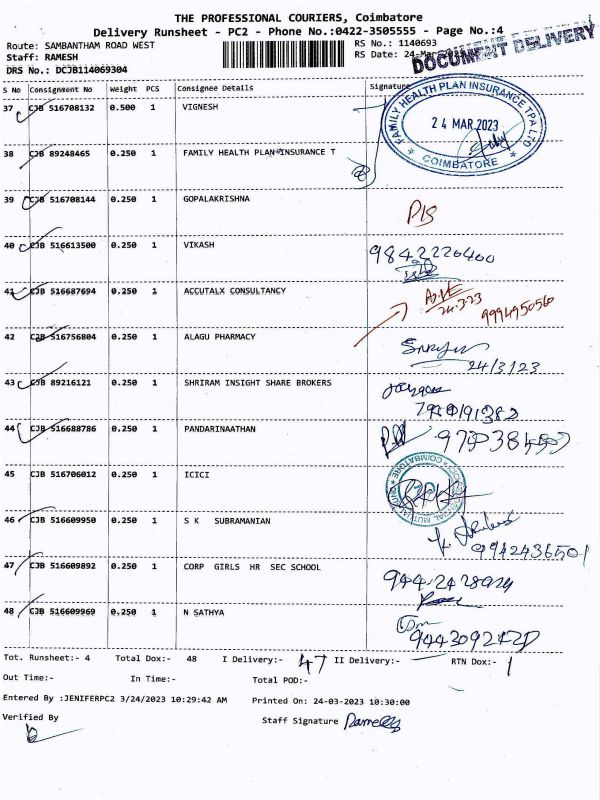 THE PROFESSIONAL COURIERS, Coimbatore
Delivery Runsheet - PC2 - Phone No.:0422-3505555 - Page No.:4
Route: SAMBANTHAM ROAD WEST RS No.: 1140693
Staff: RAMESH RS Date: 24-Mar-
DRS No.: DCJB114069304
DOCUMENT DELIVERY
S No Consignment No Weight PCS Consignee Details Signature
37 CJB 516708132 0.500 1 VIGNESH
FAMILY HEALTH PLAN INSURANCE TPA LTD
24 MAR 2023
COIMBATORE
38 CJB 89248465 0.250 1 FAMILY HEALTH PLAN INSURANCE T
39 CJB 516708144 0.250 1 GOPALAKRISHNA
40 CJB 516613500 0.250 1 VIKASH 9842220400
41 CJB 516687694 0.250 1 ACCUTALX CONSULTANCY
24.3.23
9994950560
42 CJB 516756804 0.250 1 ALAGU PHARMACY
24/3/23
43 CJB 89216121 0.250 1 SHRIRAM INSIGHT SHARE BROKERS
44 CJB 516688786 0.250 1 PANDARINAATHAN
45 CJB 516706012 0.250 1 ICICI
COIMBATORE
46 CJB 516609950 0.250 1 S K SUBRAMANIAN
9942436501
47 CJB 516609892 0.250 1 CORP GIRLS HR SEC SCHOOL
48 CJB 516609969 0.250 1 N SATHYA
Tot. Runsheet:- 4 Total Dox:- 48 I Delivery:- 47 II Delivery:- — RTN Dox:- 1
Out Time:- In Time:- Total POD:-
Entered By :JENIFERPC2 3/24/2023 10:29:42 AM Printed On: 24-03-2023 10:30:00
Verified By Staff Signature